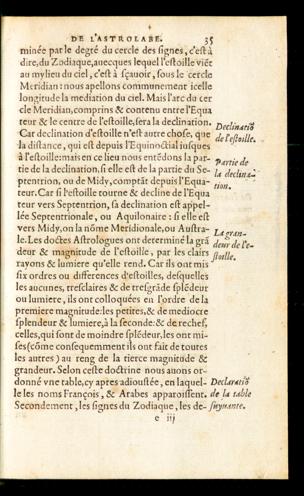 DE L'ASTROLABE. 35
minée par le degré du cercle des signes, c'est à
dire, du Zodiaque, auecques lequel l'estoille viẽt
au mylieu du ciel, c'est à sçauoir, sous le cercle
Meridian: nous appellons communement icelle
longitude la mediation du ciel. Mais l'arc du cer
cle Meridian, comprins & contenu entre l'Equa
teur & le centre de l'estoille, sera la declination.
Car declination d'estoille n'est autre chose, que
la distance, qui est depuis l'Equinoctial iusques
à l'estoille: mais en ce lieu nous entẽdons la par-
tie de la declination, si elle est de la partie du Se-
ptentrion, ou de Midy, comptãt depuis l'Equa-
teur. Car si l'estoille tourne & decline de l'Equa
teur vers Septentrion, sa declination est appel-
lée Septentrionale, ou Aquilonaire: si elle est
vers Midy, on la nõme Meridionale, ou Austra-
le. Les doctes Astrologues ont determiné la grã
deur & magnitude de l'estoille, par les clairs
rayons & lumiere qu'elle rend. Car ils ont mis
six ordres ou differences d'estoilles, desquelles
les aucunes, tresclaires & de tresgrãde splẽdeur
ou lumiere, ils ont colloquées en l'ordre de la
premiere magnitude: les petites, & de mediocre
splendeur & lumiere, à la seconde: & de rechef,
celles, qui sont de moindre splẽdeur, les ont mi-
ses (cõme consequemment ils ont fait de toutes
les autres) au reng de la tierce magnitude &
grandeur. Selon ceste doctrine nous auons or-
donné vne table, cy apres adioustée, en laquel-
le les noms François, & Arabes apparoissent.
Secondement, les signes du Zodiaque, les de-
e iij
Declinatiõ
de l'estoille.
Partie de
la declina-
tion.
La gran-
deur de l'e-
stoille.
Declaratiõ
de la table
suyuante.